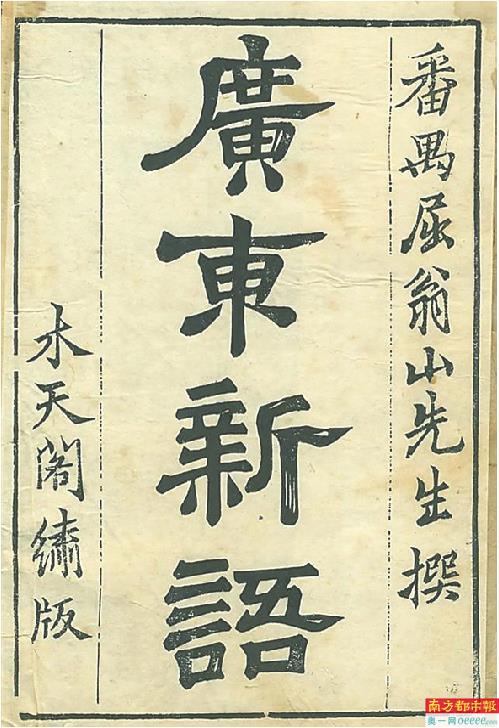 番禺屈翁山先生撰
廣東新語
木天閣繡版
南方都市報
奥一网oeeee.com